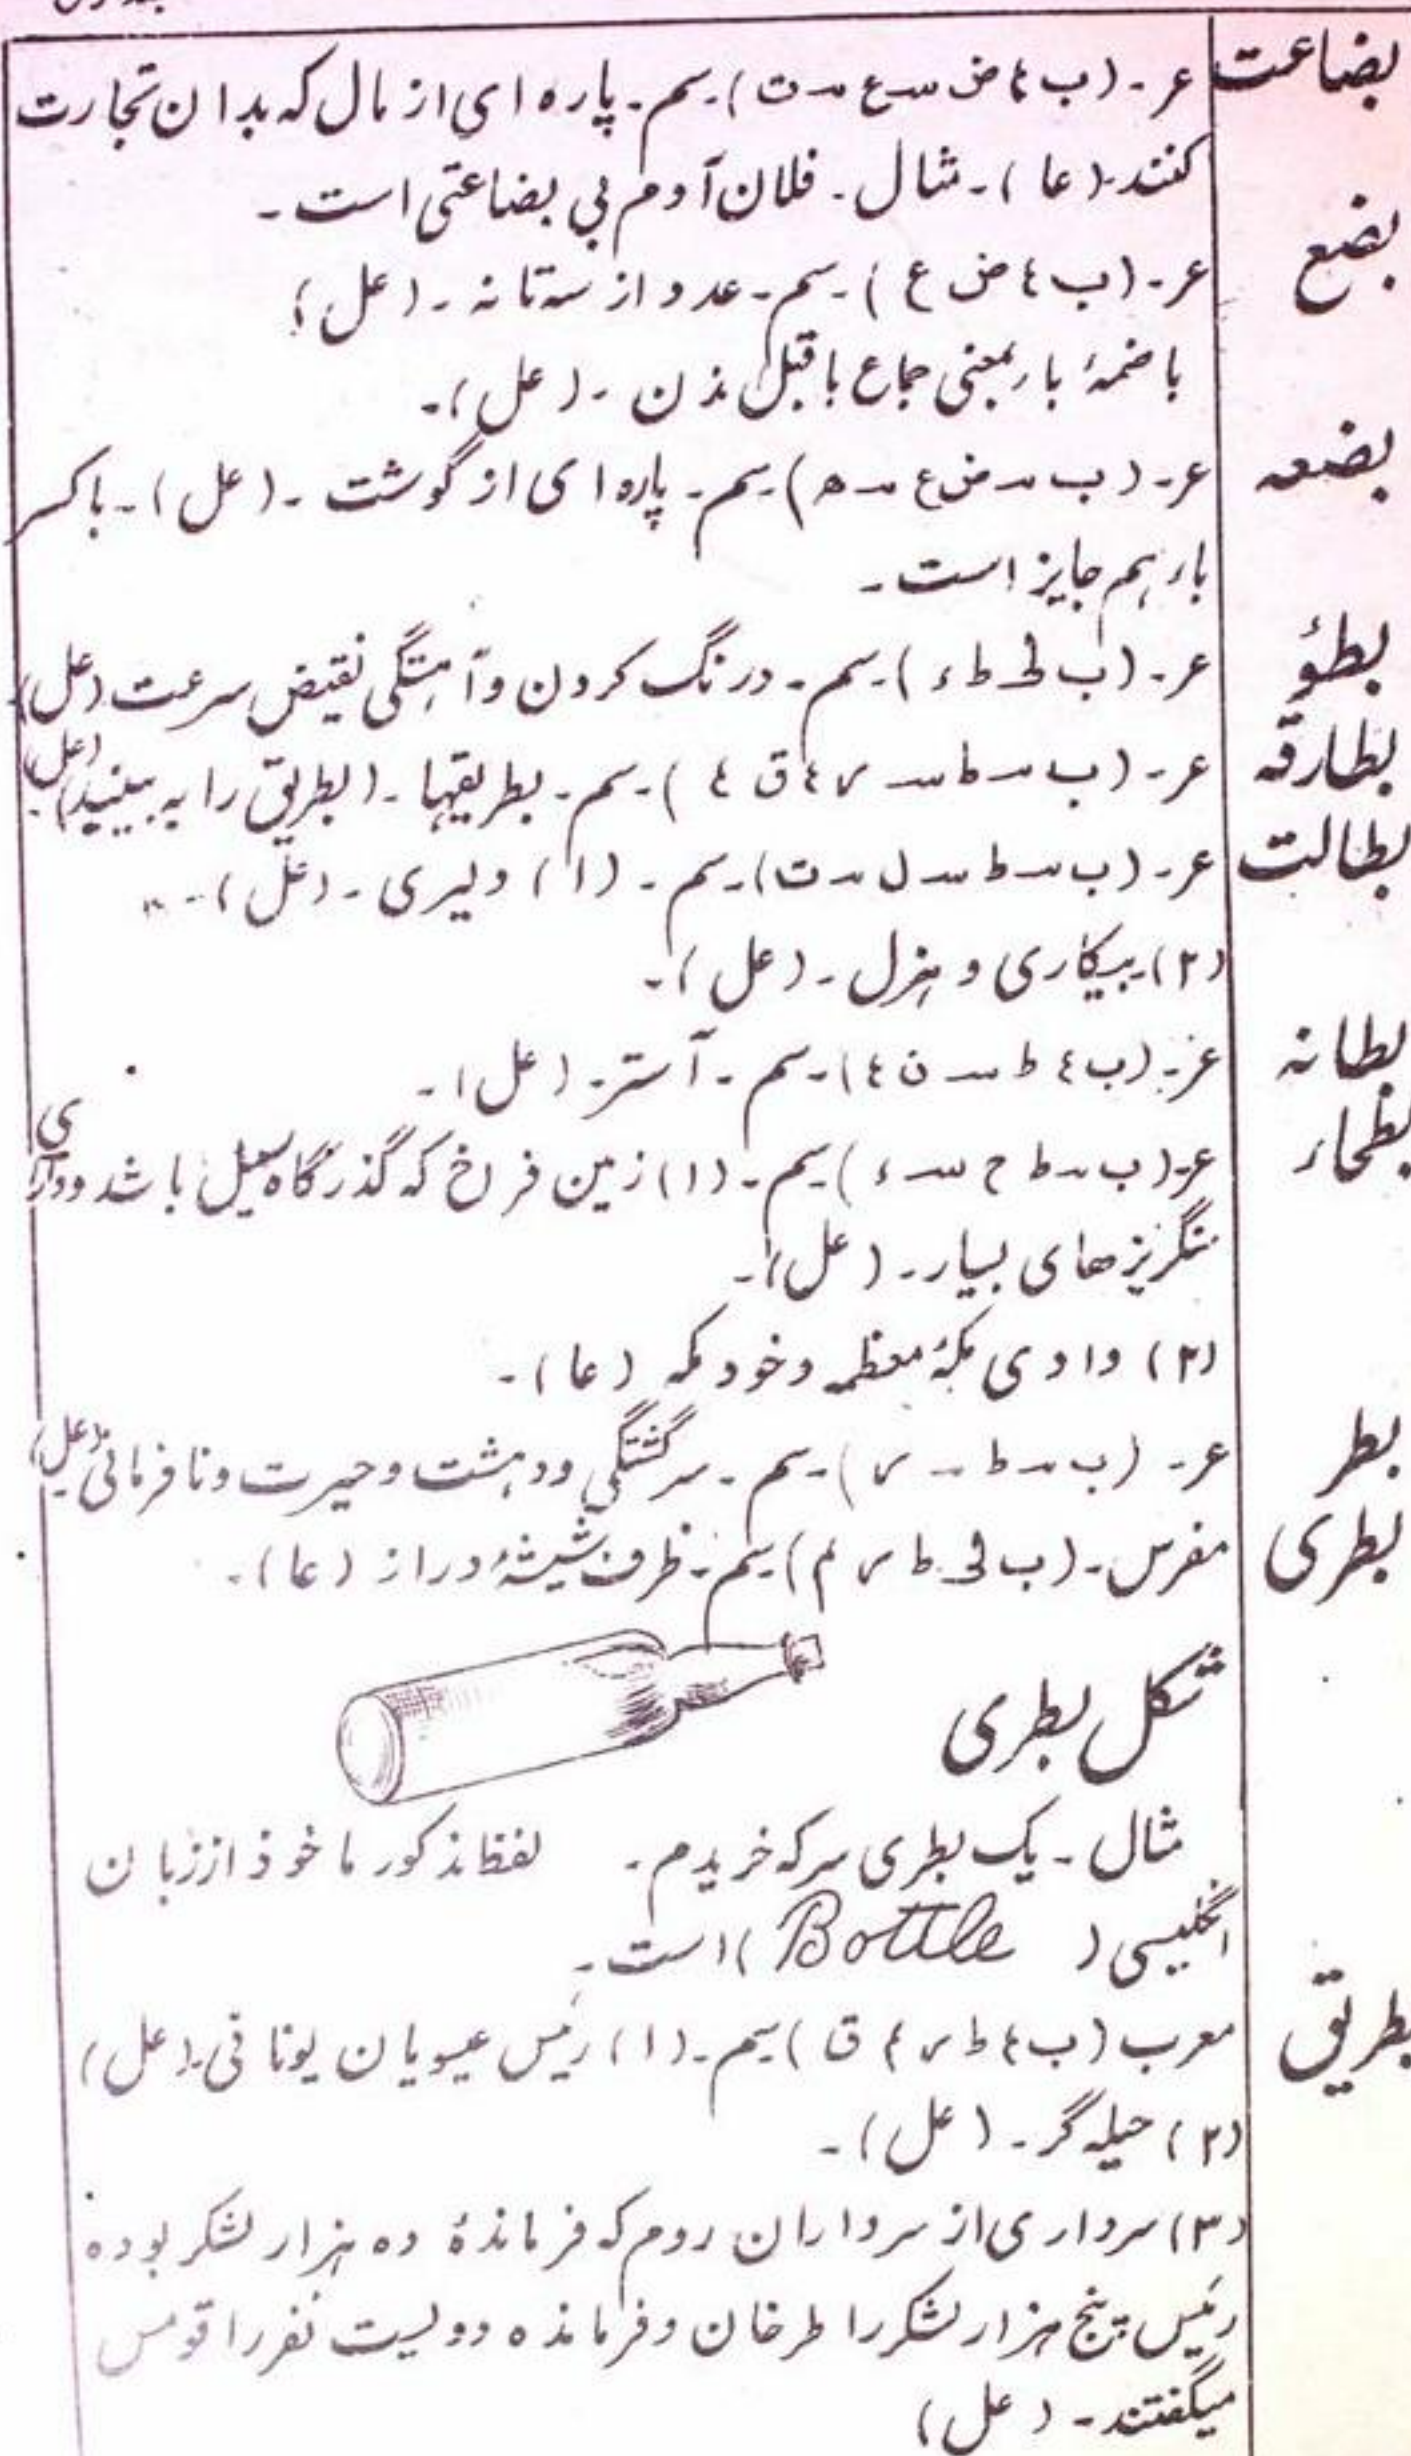 بضاعت عر - (ب ؛ ض س ع - ت) - سم - پاره ای از مال که بدان تجارت
کنند (عا) - مثال - فلان آدم بی بضاعتی است -
بضع عر - (ب ؛ ض ع) - سم - عدد از سه تا نه - (عل)
با ضمهٔ باء بمعنی جماع با قبل زن - (عل) -
بضعه عر - (ب - ض ع - ه) - سم - پاره ای از گوشت - (عل) - با کسر
باء هم جایز است -
بطؤ عر - (ب ط ء) - سم - درنگ کردن و آهستگی نقیض سرعت (عل)
بطارقه عر - (ب - ط س ر ؛ ق ؛) - سم - بطریقها - (بطریق را به بینید) - (عل)
بطالت عر - (ب - ط س ل - ت) - سم - (۱) دلیری - (عل) -
(۲) بیکاری و هزل - (عل) -
بطانه عر - (ب ؛ ط س ن ؛) - سم - آستر - (عل) -
بطحاء عر - (ب - ط ح س ء) - سم - (۱) زمین فراخ که گذرگاه سیل باشد ودارای
سنگریزهای بسیار - (عل) -
(۲) وادی مکهٔ معظمه وخود مکه (عا) -
بطر عر - (ب - ط - ر) - سم - سرگشتگی ودهشت وحیرت ونافرمانی (عل)
بطری مفرس - (ب ط ر) - سم - ظرف شیشهٔ دراز (عا) -
شکل بطری
مثال - یک بطری سرکه خریدم - لفظ مذکور ماخوذ از زبان
انگلیسی (Bottle) است -
بطریق معرب (ب ؛ ط ر ؛ ق) - سم - (۱) رئیس عیسویان یونانی - (عل)
(۲) حیله گر - (عل) -
(۳) سرداری از سرداران روم که فرماندهٔ ده هزار لشکر بوده
رئیس پنج هزار لشکر را طرخان وفرمانده دویست نفر را قومس
میگفتند - (عل)